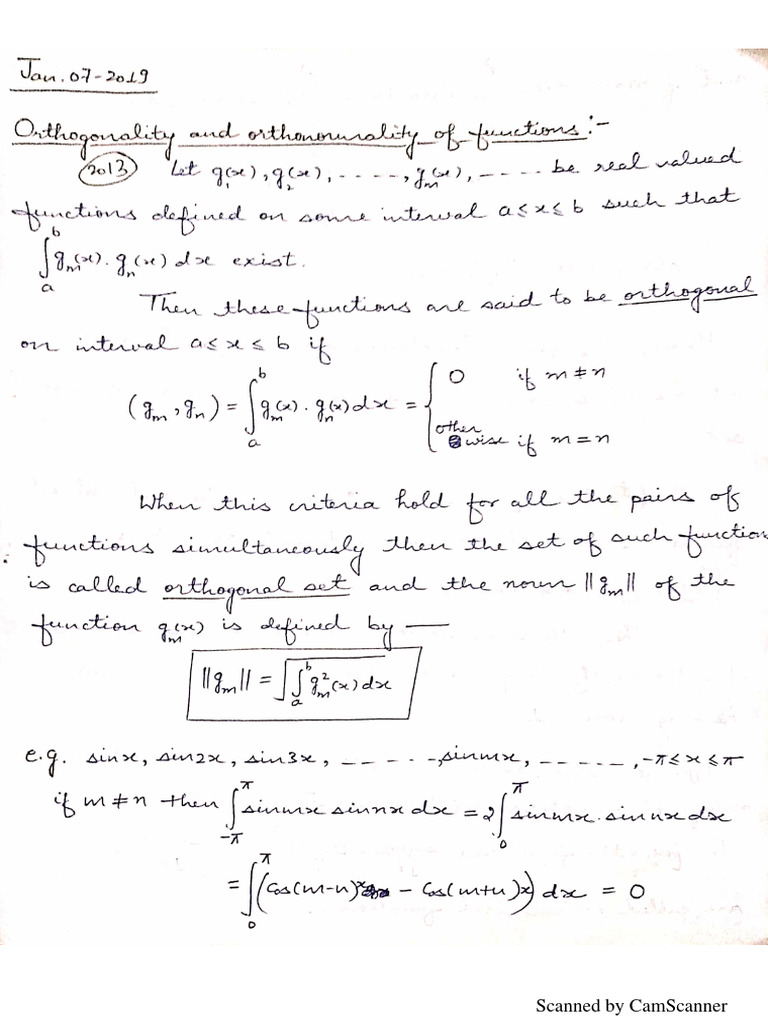 Jan. 07-2019
Orthogonality and orthonormality of functions:-
(2013) Let g₁(x), g₂(x), - - - - -, gₘ(x), - - - - be real valued
functions defined on some interval a≤x≤b such that
∫ₐᵇ gₘ(x). gₙ(x) dx exist.
Then these functions are said to be orthogonal
on interval a≤x≤b if
(gₘ, gₙ) = ∫ₐᵇ gₘ(x). gₙ(x) dx = { 0 if m≠n
otherwise if m=n
When this criteria hold for all the pairs of
functions simultaneously then the set of such function
is called orthogonal set and the norm ||gₘ|| of the
function gₘ(x) is defined by —
||gₘ|| = √∫ₐᵇ gₘ²(x) dx
e.g. sinx, sin2x, sin3x, - - - - - -, sinmx, - - - - - -, -π≤x≤π
if m≠n then ∫₋π^π sinmx sinnx dx = 2∫₀^π sinmx. sinnx dx
= ∫₀^π (Cos(m-n)x - Cos(m+n)x) dx = 0
Scanned by CamScanner